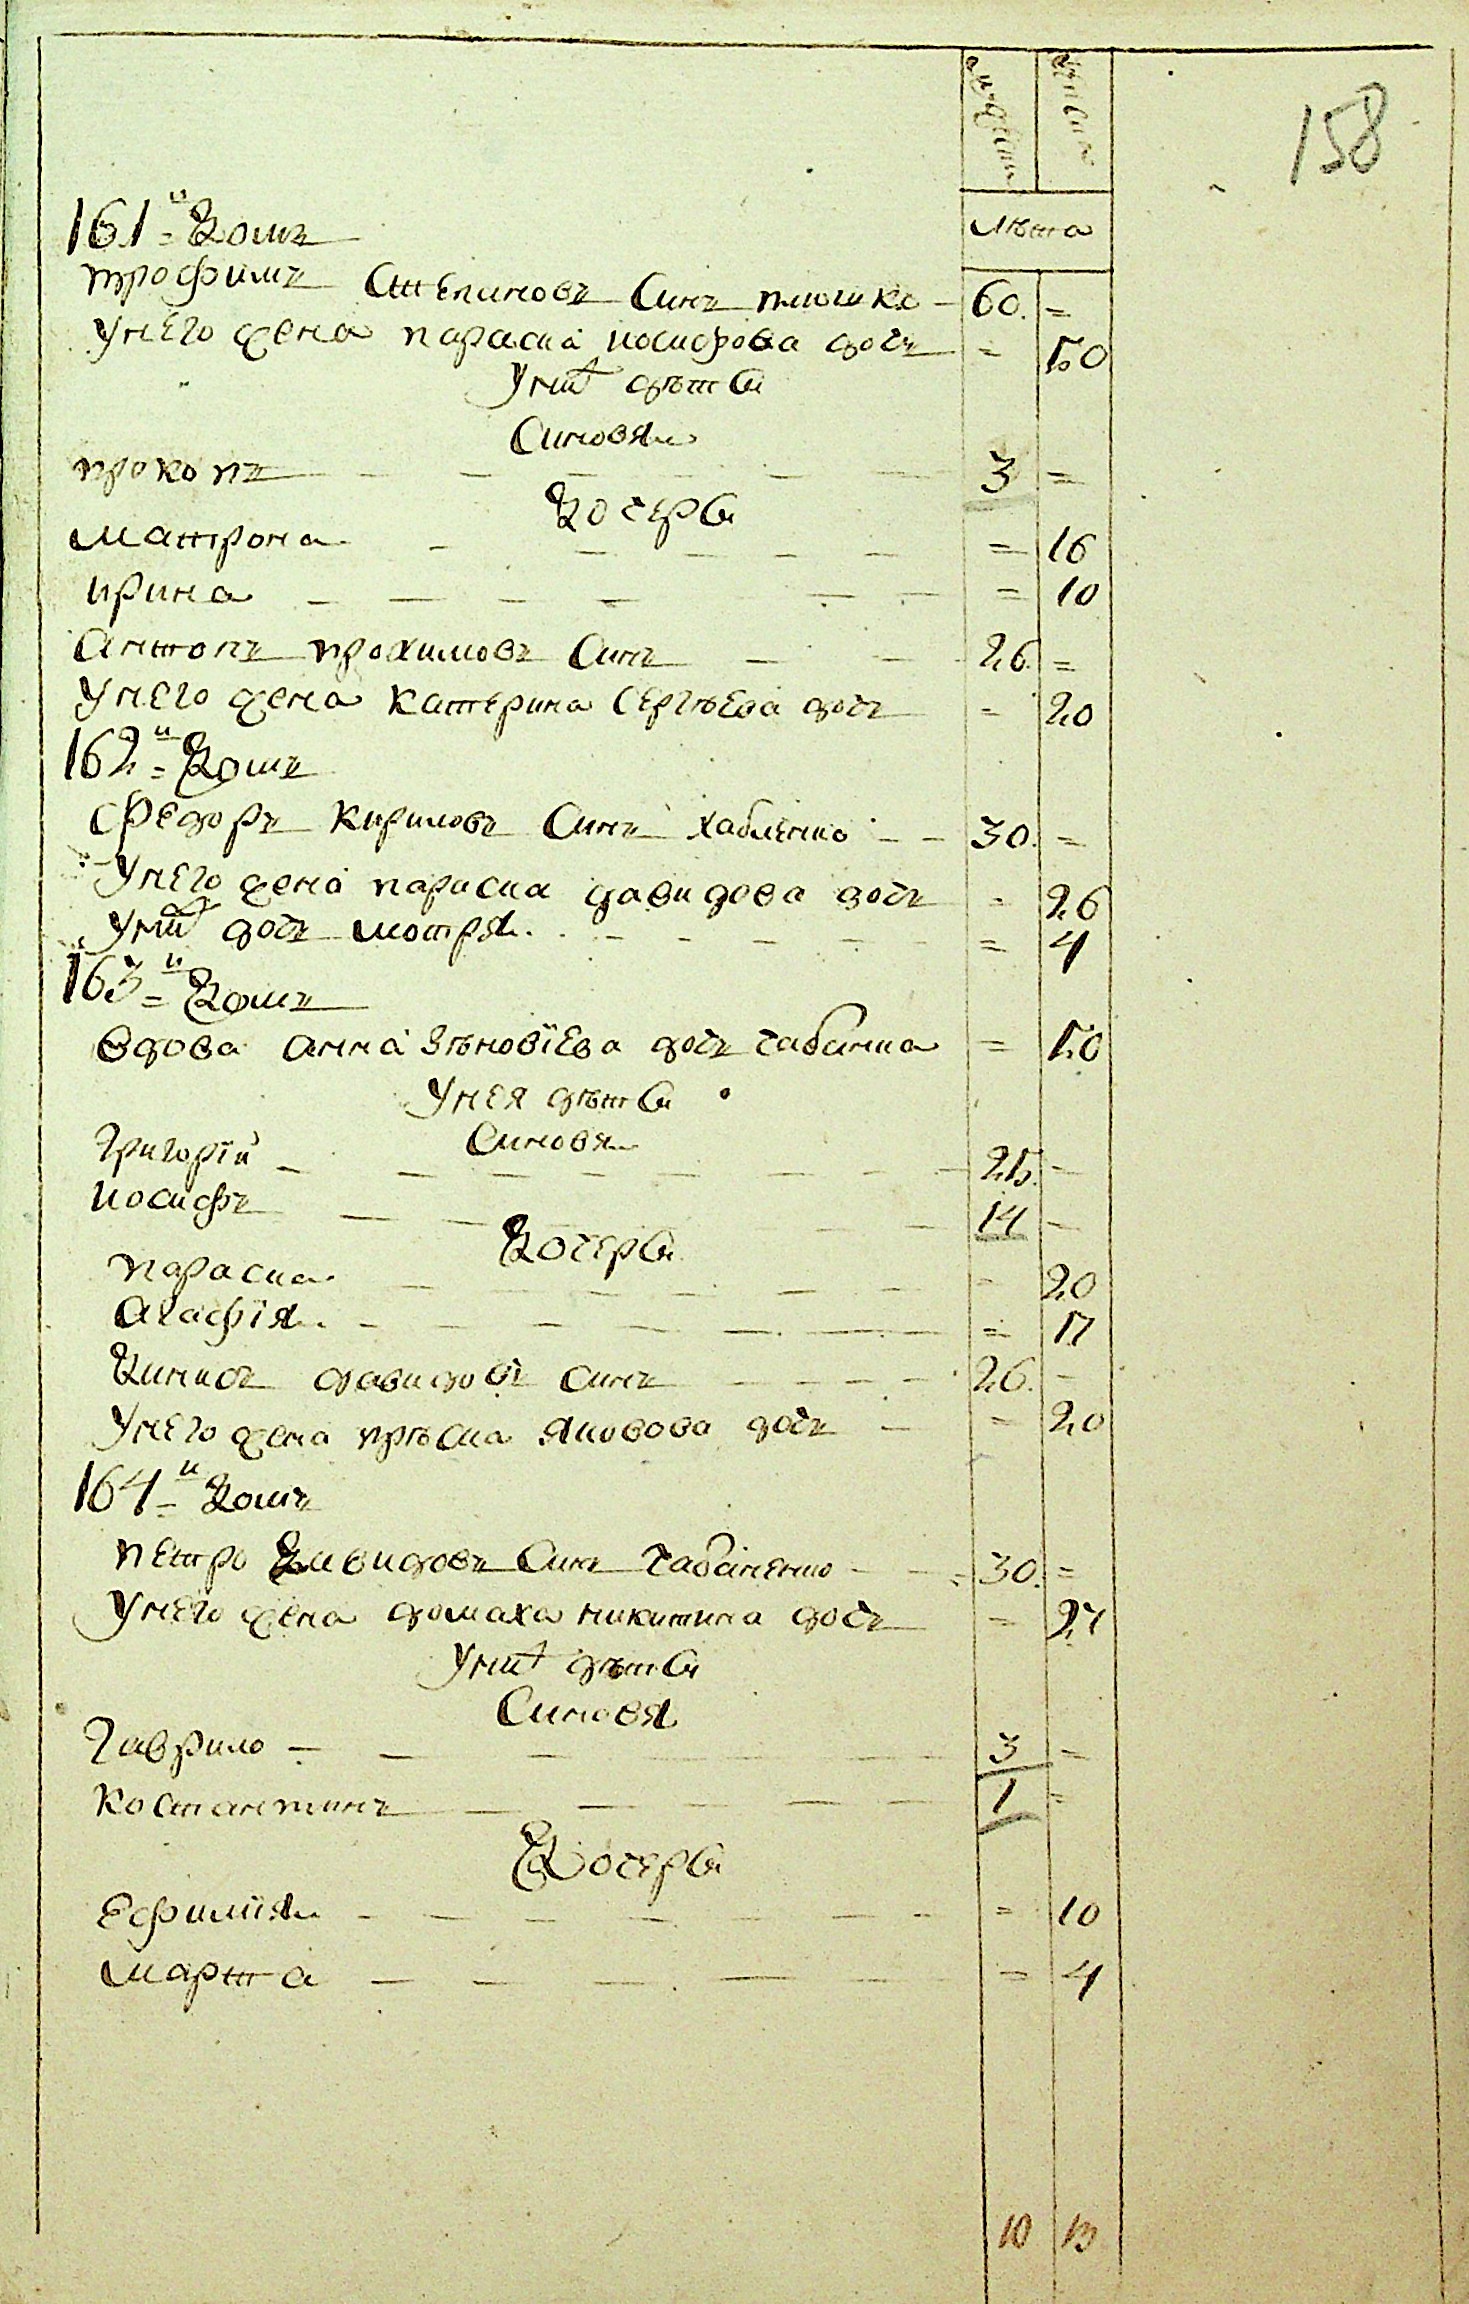 158
мужеска женска
лѣта
161й домъ
трофимъ Степановъ Синъ 60. =
У него жена параска иосифова дочъ = 50
У них дѣти
Синовя
прокопъ 3 =
Дочери
матрона = 16
ирина = 10
Антонъ прохимовъ Синъ 26. =
У него жена катерина Сергѣева дочъ = 20
162й домъ
Федоръ кириловъ Синъ хабленко 30. =
У него жена параска давидова дочъ = 26
У них дочъ мотря = 4
163й домъ
вдова анна зѣновїева дочъ чабанка = 50
У нея дѣти
Синовя
Григорїй 25. -
иосифъ 14 -
Дочери
параска - 20
Агафїя = 17
давидовъ синъ 26. -
У него жена прѣска яковова дочъ = 20
164й домъ
петро Давидовъ Синъ чабаненко 30. =
У него жена домаха никитина дочъ = 27
У них дѣти
Синовя
Гаврило 3 =
костантинъ 1 =
Дочери
Ефимия = 10
марта = 4
10 13